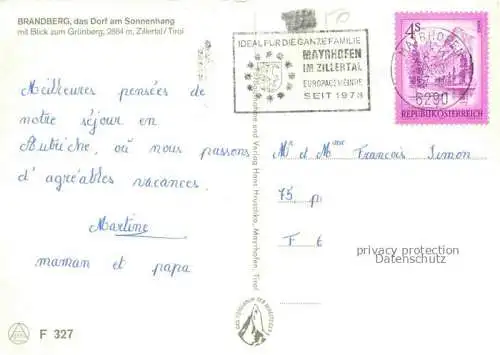 BRANDBERG, das Dorf am Sonnenhang
mit Blick zum Grünberg, 2864 m, Zillertal / Tirol
IDEAL FÜR DIE GANZE FAMILIE
MAYRHOFEN
IM ZILLERTAL
EUROPAGEMEINDE
SEIT 1973
MAYRHOFEN
6290
4S
REPUBLIK ÖSTERREICH
Meilleures pensées de
notre séjour en
Autriche, où nous passons
d'agréables vacances.
Martine
maman et papa
Mr et Mme François Simon
75, p
F t
Verlag Hans Hruschka, Mayrhofen, Tirol
privacy protection
Datenschutz
F 327